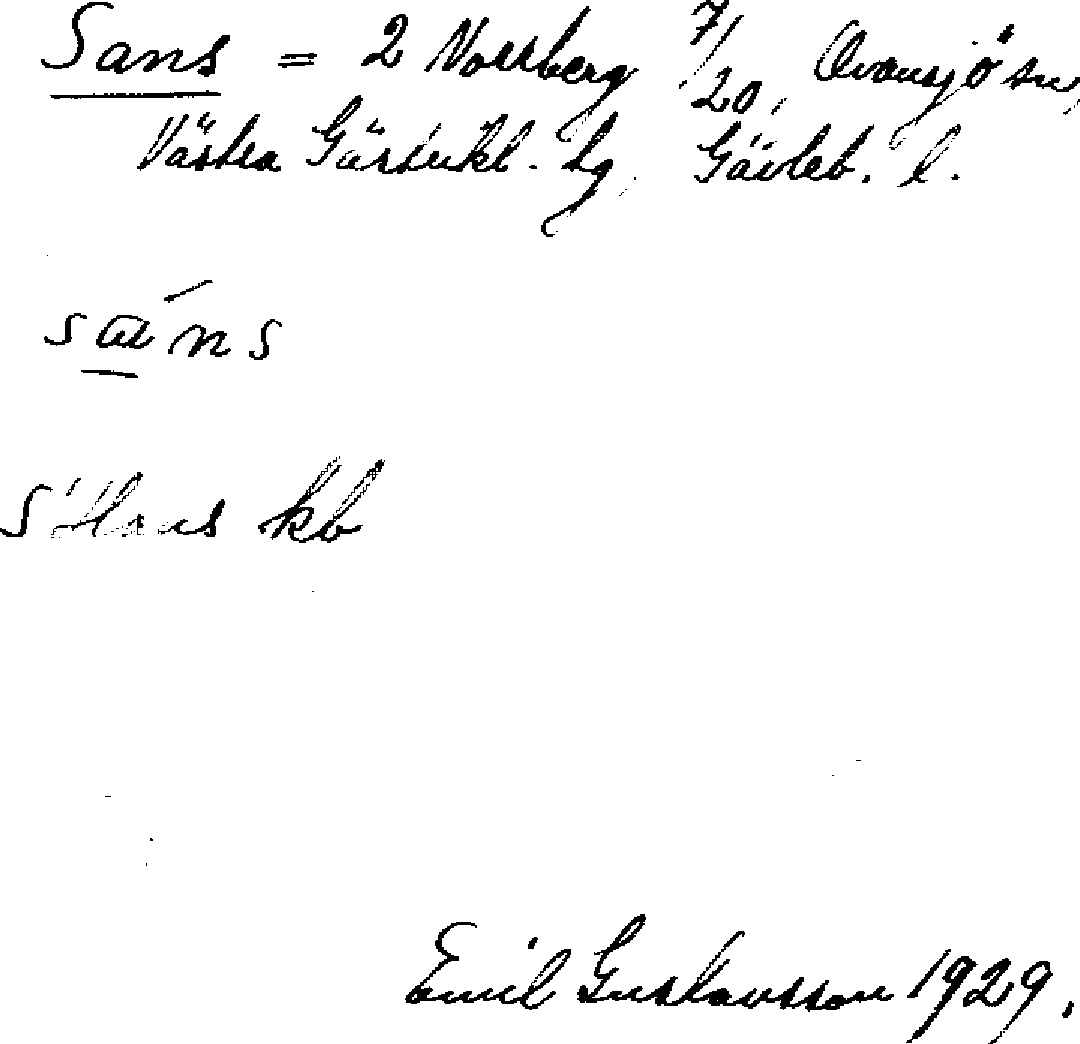 Sans = 2 Norrberg 7/20, Ovansjö sn,
Västra Gästrikl. hg. Gävleb. l.
sa̱´ns
S'Hans kb
Emil Gustavsson 1929.